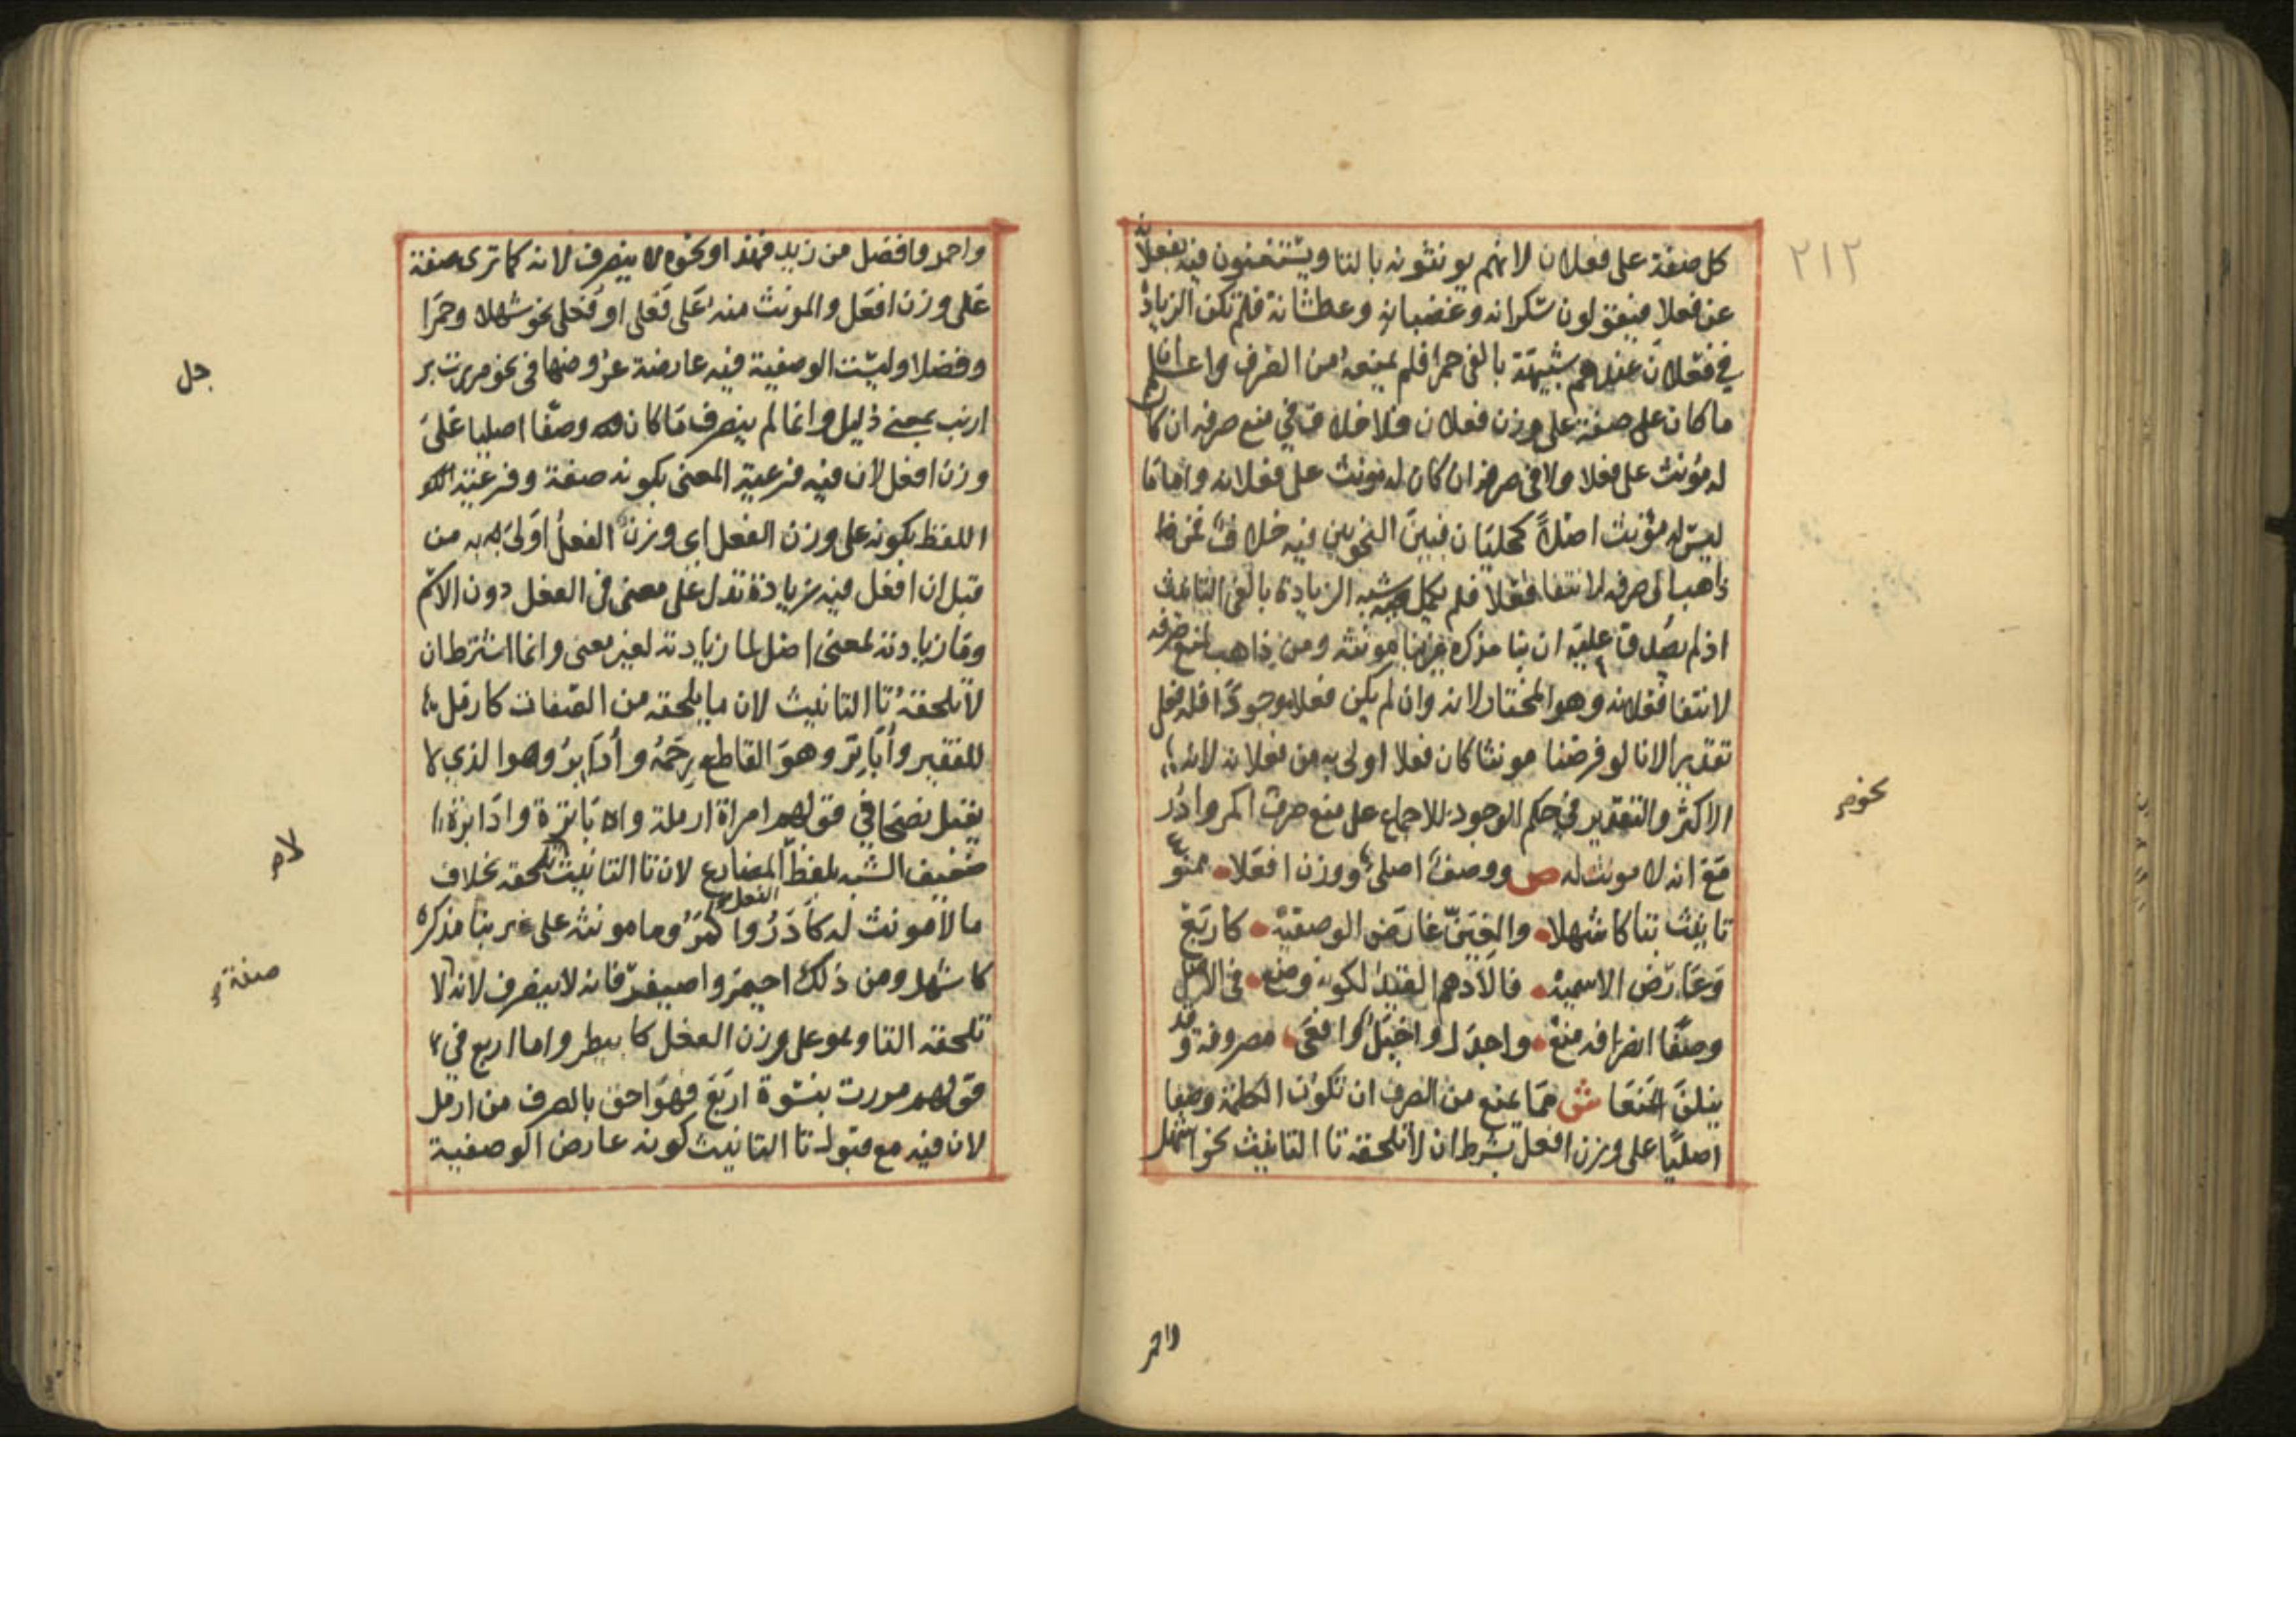 ٢١٢
كل صفة على فعلان لانهم يونثونه بالتا ويستغنون فيه بفعلانة
عن فعلا فيقولون سكرانه وغضبانه وعطشانة فلم تكن الزيادة
في فعلان عندهم شبيهة بالفى حمرا فلم يمنع من الصرف واعلم ان
ما كان على صفة على وزن فعلان فلا خلاف في منع صرفه ان كان
له مؤنث على فعلا ولا في صرفه ان كان له مونث على فعلانه واما ما
ليس له مؤنث اصلا كلحيان فبين النحويين فيه خلاف فمن
ذاهب الى صرفه لانتفا فعلا فلم يكمل فيه شبه الزيادة بالفى التانيث
اذ لم يصدق عليه ان بنا مذكره غير بنا مونثه ومن ذاهب لمنع صرفه
لانتفا فعلانه وهو المختار لانه وان لم يكن فعلا موجودا فله فعلى
تقديرا لانا لو فرضنا مونثا كان فعلا اولى به من فعلانه لانه
الاكثر والتقدير في حكم الوجود للاجماع على منع صرف اكمر وادر
نحو
مع انه لا مونث له ص ووصف اصلي ووزن افعلا ممنوع
تانيث بتا كاشهلا والغين عارض الوصفيه كاربع
وعارض الاسميه فالادهم القيد لكونه وضع في الاصل
وصفا انصرافه منع واجدل واخيل وافعى مصروفة وقد
ينلن المنعا ش مما يمنع من الصرف ان تكون الكلمة وصفا
اصليا على وزن افعل بشرط ان لا تلحقه تا التانيث نحو اشهل
واحمر
واحمر وافضل من زيد فهذا ونحوه لا ينصرف لانه كما ترى صفة
على وزن افعل والمونث منه على فعلى او فعلى نحو شهلا وحمرا
وفضلا وليست الوصفية فيه عارضة عروضها في نحو مررت بر
جل
ارنب بمعنى ذليل وانما لم ينصرف ما كان وصفا اصليا على
وزن افعل لان فيه فرعية المعنى بكونه صفة وفرعية
اللفظ بكونه على وزن الفعل اي وزن الفعل اولى به من
قبل ان افعل فيه زيادة تدل على معنى في الفعل دون الاسم
وما زيادته لمعنى اصل لما زيادته لغير معنى وانما اشترط ان
لا تلحقه تا التانيث لان ما يلحقه من الصفات كارمل
للفقير واباتر وهو القاطع رحمه وادابر وهو الذي لا
يقبل نصحا في قولهم امراة ارملة واباترة وادابرة
لا
ضعيف الشبه بلفظ المضارع لان تا التانيث تلحقه بخلاف
ما لا مونث له كادر واكمر وما مونثه على غير بنا مذكره
صفة
كاشهل ومن ذلك احيمر واصيفر فانه لا ينصرف لانه لا
تلحقه التا وهو على وزن الفعل كابيطر واما اربع في
قولهم مررت بنسوة اربع فهو احق بالصرف من ارمل
لان فيه مع قبول تا التانيث كونه عارض الوصفية